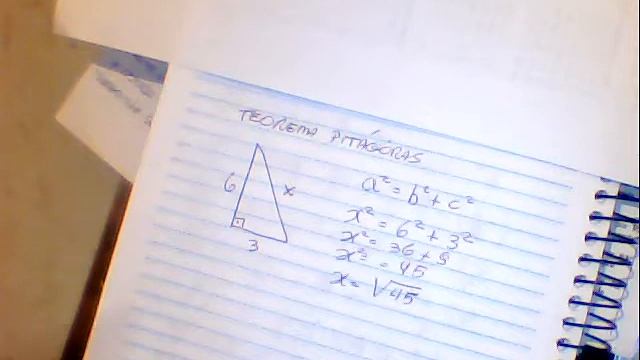 TEOREMA PITÁGORAS
6
x
3
a² = b² + c²
x² = 6² + 3²
x² = 36 + 9
x² = 45
x = √45